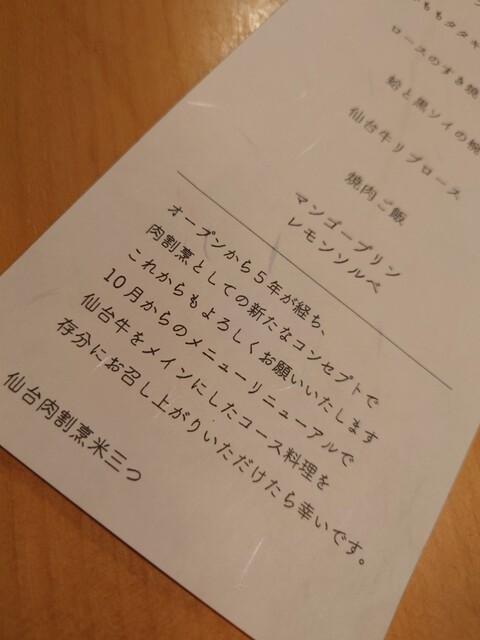 ももタタキ
ロースのすき焼
蛤と黒ソイの椀
仙台牛リブロース
焼肉ご飯
マンゴープリン
レモンソルベ
オープンから5年が経ち、
肉割烹としての新たなコンセプトで
これからもよろしくお願いいたします
10月からのメニューリニューアルで
仙台牛をメインにしたコース料理を
存分にお召し上がりいただけたら幸いです。
仙台肉割烹米三つ